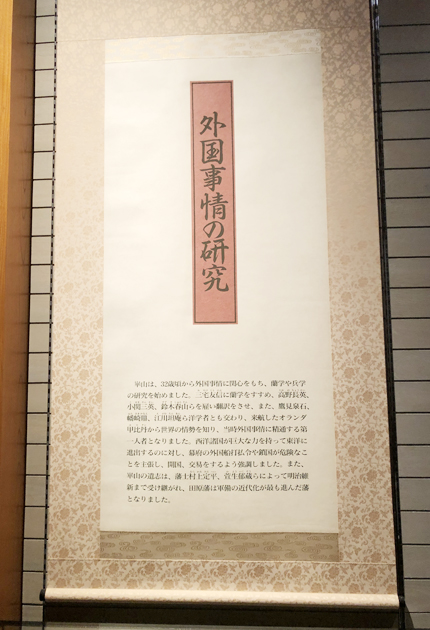 外国事情の研究
崋山は、32歳頃から外国事情に関心をもち、蘭学や兵学
の研究を始めました。三宅友信に蘭学をすすめ、高野長英、
小関三英、鈴木春山らを雇い翻訳をさせ、また、鷹見泉石、
幡崎鼎、江川坦庵ら洋学者とも交わり、来航したオランダ
甲比丹から世界の情勢を知り、当時外国事情に精通する第
一人者となりました。西洋諸国が巨大な力を持って東洋に
進出するのに対し、幕府の外国船打払令や鎖国が危険なこ
とを主張し、開国、交易をするよう強調しました。また、
崋山の遺志は、藩士村上定平、萱生郁蔵らによって明治維
新まで受け継がれ、田原藩は軍備の近代化が最も進んだ藩
となりました。